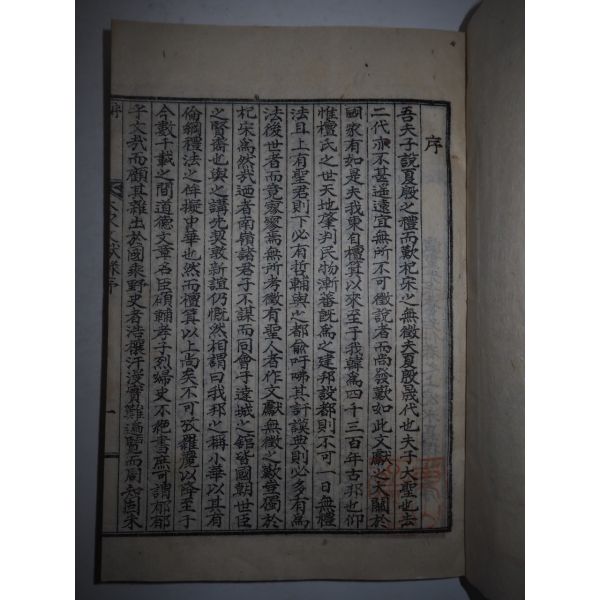 序
吾夫子說夏殷之禮而歎杞宋之無徵夫夏殷晟代也夫子大聖也去
二代亦不甚遥遠宜無所不可徵說者而尚發歎如此文獻之大關於
國家有如是夫我東自檀箕以來至于我韓爲四千三百年古邦也仰
惟檀氏之世天地肇判民物漸蕃旣爲之建邦設都則不可一日無禮
法且上有聖君則下必有哲輔與之都兪吁咈其訏謨典則必多有爲
法後世者而竟寥寥焉無所考徵有聖人者作文獻無徵之歎豈獨於
杞宋爲然哉迺者南嶺諸君子不謀而同會于遠城之舘皆國朝世臣
之賢裔也與之講先契敦新誼仍慨然相謂曰我邦之稱小華以其有
倫綱禮法之侔擬中華也然而檀箕以上尚矣不可攷羅麗以降至于
今數千載之間道德文章名臣碩輔孝子烈婦史不絶書庶可謂郁郁
乎文哉而顧其雜出於國乘野史者浩穰汗漫實難遍覽而周知固未
序
一